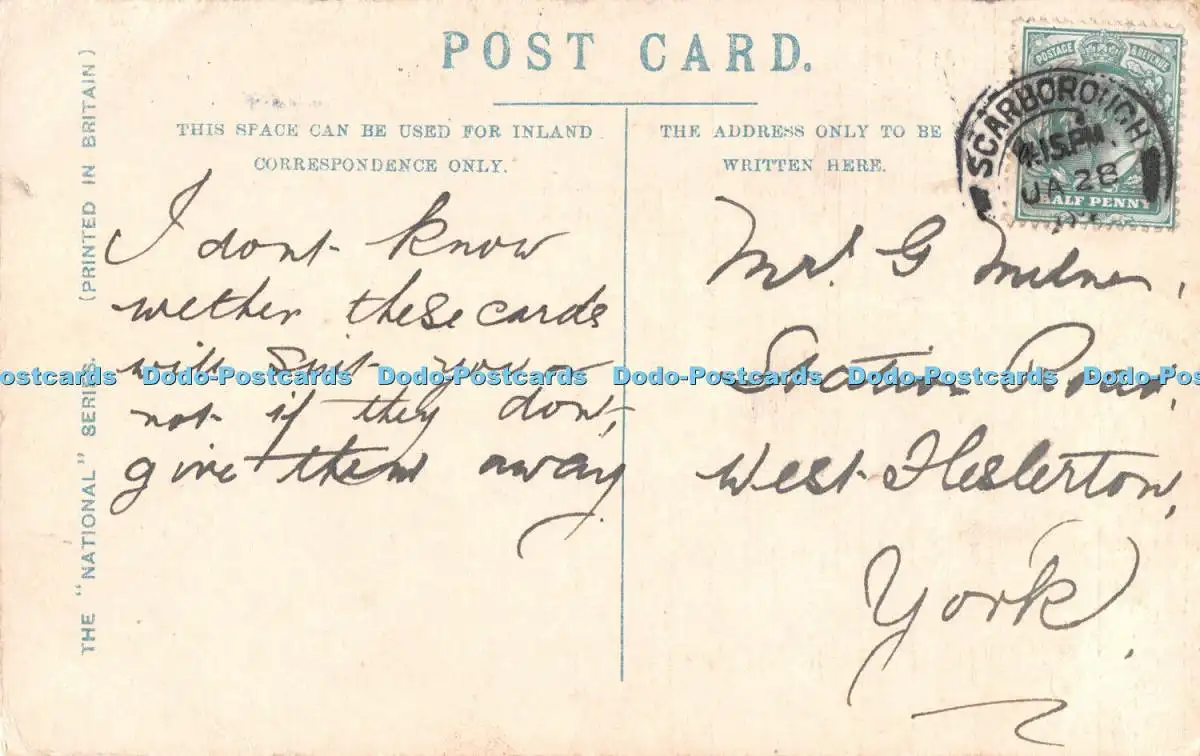 POST CARD.
THIS SPACE CAN BE USED FOR INLAND
CORRESPONDENCE ONLY.
THE ADDRESS ONLY TO BE
WRITTEN HERE.
POSTAGE & REVENUE
HALF PENNY
SCARBOROUGH
4.15.PM.
JA 28
THE "NATIONAL" SERIES. (PRINTED IN BRITAIN)
I dont know
wether these cards
will suit you or
not if they dont,
give them away
Mrs. G Milner,
Station Road,
West Heslerton,
York.
ostcards Dodo-Postcards Dodo-Postcards Dodo-Postcards Dodo-Postcards Dodo-Post